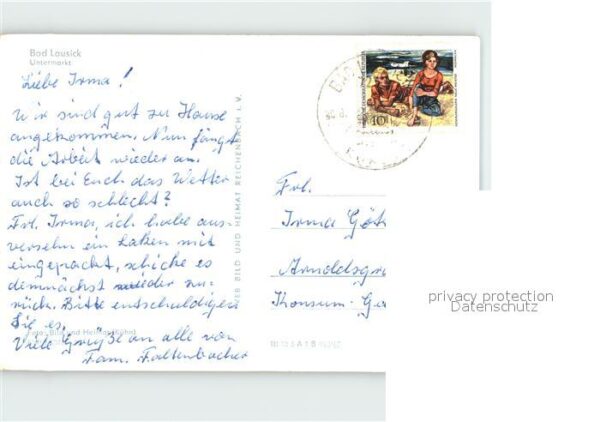 Bad Lausick
Untermarkt
Liebe Irma!
Wir sind gut zu Hause
angekommen. Nun fängt
die Arbeit wieder an.
Ist bei Euch das Wetter
auch so schlecht?
Frl. Irma, ich habe aus-
versehn ein Laken mit
eingepackt, schicke es
demnächst wieder zu-
rück. Bitte entschuldigen
Sie es.
Foto: Bild und Heimat (Kühn)
Viele Grüße an alle von
Fam. Faltenbacher
VEB BILD UND HEIMAT REICHENBACH i. V.
10
Frl.
Irma Göt
Arnoldsgr
Konsum-Ga
privacy protection
Datenschutz